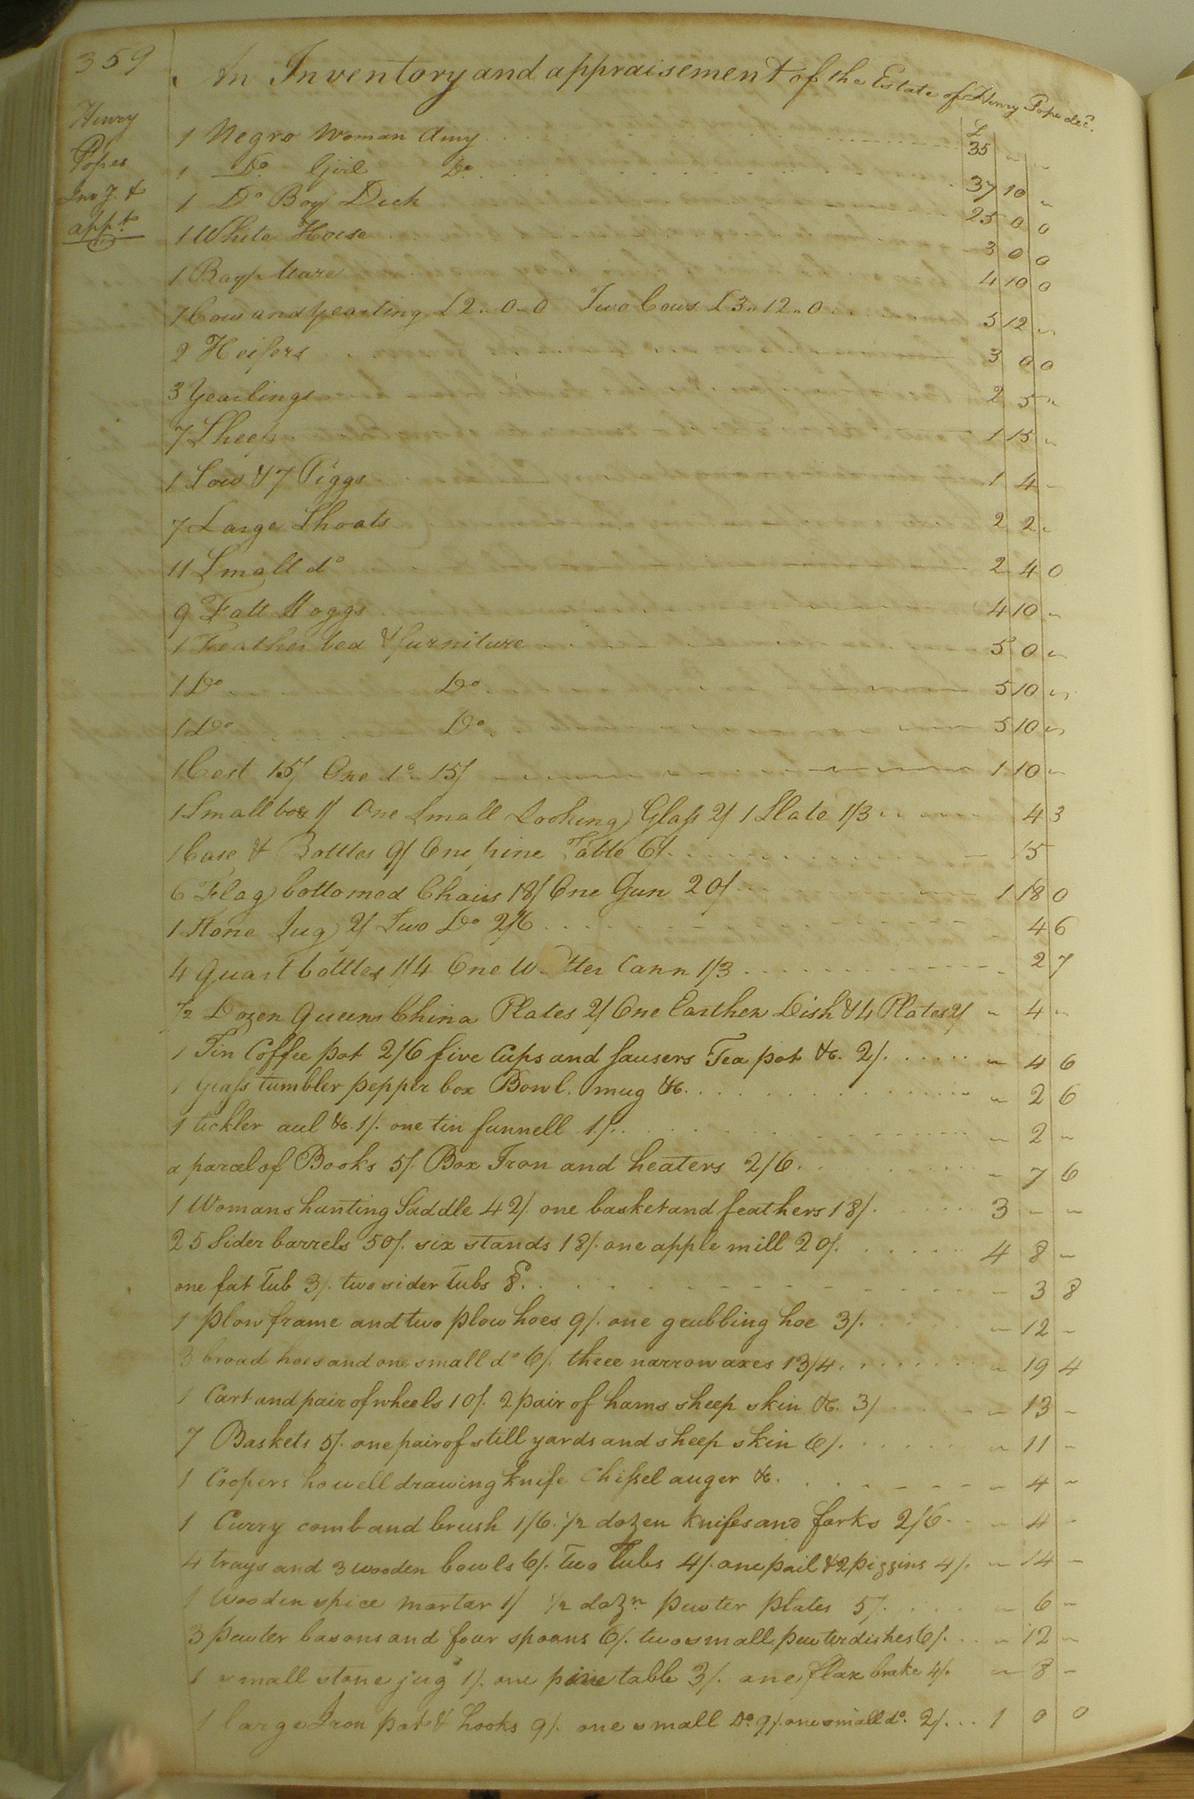 359
An Inventory and appraisement of the Estate of Henry Pope decd.
Henry
Popes
Invy. &
appt.
£
1 Negro Woman Amy 35 " "
1 Do. Girl Do. 37 10 "
1 Do Boy Dick 25 0 0
1 White Horse 3 0 0
1 Bay Mare 4 10 0
1 Cow and yearling £2..0..0 Two Cows £3..12..0 5 12 "
2 Heifers 3 0 0
3 Yearlings 2 5 "
7 Sheep 1 15 "
1 Sow & 7 Piggs 1 4 -
7 Large Shoats 2 2 -
11 Small do 2 4 0
9 Fatt Hoggs 4 10 "
1 Feather bed & furniture 5 0 "
1 Do. Do. 5 10 "
1 Do. Do. 5 10 "
1 Cest 15/ One do. 15/ 1 10 "
1 Small box 1/ One Small Looking Glass 2/ 1 Slate 1/3 4 3
1 Case & Bottles 9/ One pine Table 6/ 15
6 Flag bottomed Chairs 18/ One Gun 20/ 1 18 0
1 Stone Jug 2/ Two Do 2/6 4 6
4 Quart bottles 1/4 One Watter Cann 1/3 2 7
1/2 Dozen Queens China Plates 2/ One Earthen Dish & 4 Plates 2/ " 4 "
1 Tin Coffee pot 2/6 five Cups and Sausers Tea pot &c. 2/. " 4 6
1 glass tumbler pepper box Bowl. mug &c. " 2 6
1 tickler aul &c. 1/. one tin funnell 1/. - 2 -
a parcel of Books 5/. Box Iron and heaters 2/6. - 7 6
1 Womans hunting Saddle 42/. one basket and feathers 18/. 3 - -
25 Sider barrels 50/. six stands 18/. one apple mill 20/. 4 8 -
one fat Tub 3/. two sider Tubs 8d. - 3 8
1 plow frame and two plow hoes 9/. one grubbing hoe 3/. - 12 -
3 broad hoes and one small do 6/. three narrow axes 13/4. " 19 4
1 Cart and pair of wheels 10/. 2 pair of hams sheep skin &c. 3/ - 13 -
7 Baskets 5/. one pair of still yards and sheep skin 6/. " 11 -
1 Coopers howell drawing knife Chissel auger &c. - 4 -
1 Curry comb and brush 1/6. 1/2 dozen knifes and forks 2/6 - 4 -
4 trays and 3 wooden bowls 6/. Two Tubs 4/. one pail & 2 piggins 4/. " 14 -
1 Wooden spice mortar 1/ 1/2 dozn pewter plates 5/. " 6 -
3 pewter basons and four spoons 6/. two small pewter dishes 6/. " 12 -
1 small stone jug 1/. one pine table 3/. one flax brake 4/. " 8 -
1 large Iron pot & hooks 9/. one small Do. 9/. one small do. 2/. 1 0 0